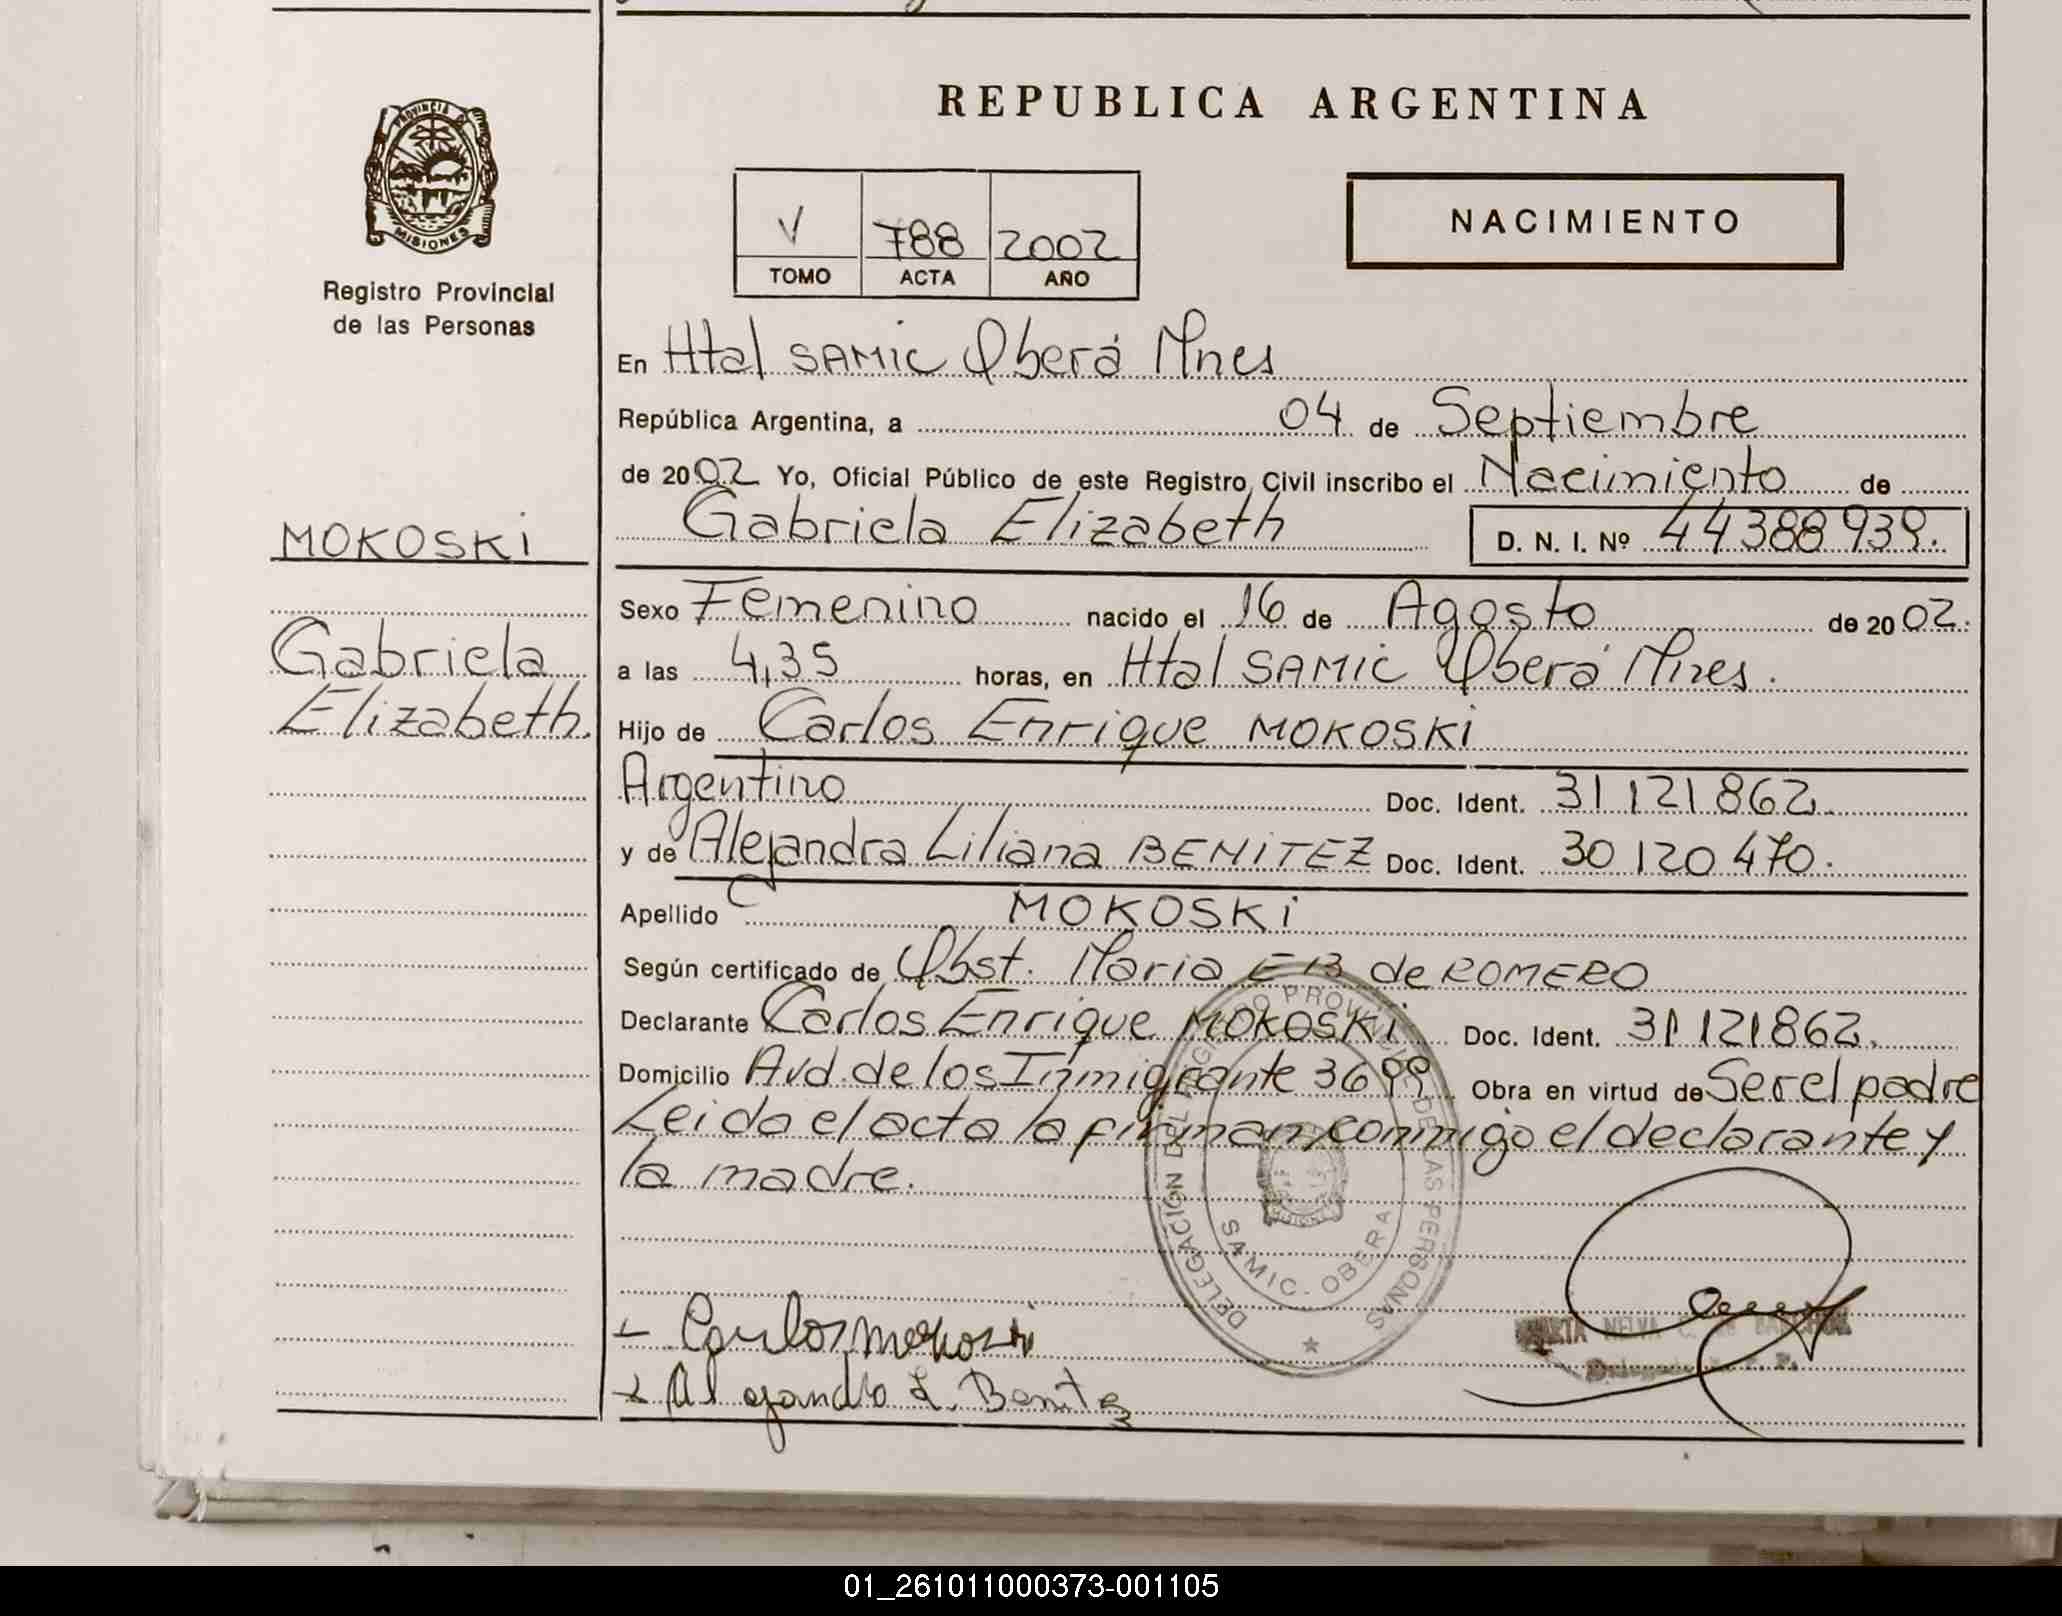 REPUBLICA ARGENTINA
PROVINCIA D MISIONES
Registro Provincial
de las Personas
V 788 2002
TOMO ACTA AÑO
NACIMIENTO
En Htal SAMIC Oberá Mnes
República Argentina, a 04 de Septiembre
de 2002 Yo, Oficial Público de este Registro Civil inscribo el Nacimiento de
Gabriela Elizabeth D. N. I. Nº 44388939.
MOKOSKi
Gabriela
Elizabeth.
Sexo Femenino nacido el 16 de Agosto de 2002.
a las 4,35 horas, en Htal SAMIC Oberá Mnes.
Hijo de Carlos Enrique MOKOSKi
Argentino Doc. Ident. 31121862.
y de Alejandra Liliana BENITEZ Doc. Ident. 30120470.
Apellido MOKOSKi
Según certificado de Obst. Maria EB de ROMERO
Declarante Carlos Enrique MOKOSKi Doc. Ident. 31121862.
Domicilio Avd. de los Inmigrante 3699 Obra en virtud de Ser el padre
Leida el acta la firman conmigo el declarante y
la madre.
DELEGACION DEL REGISTRO PROVINCIAL DE LAS PERSONAS
SAMIC. OBERA
Carlos Mokoski
Alejandra L. Benitez
NELVA
01_261011000373-001105